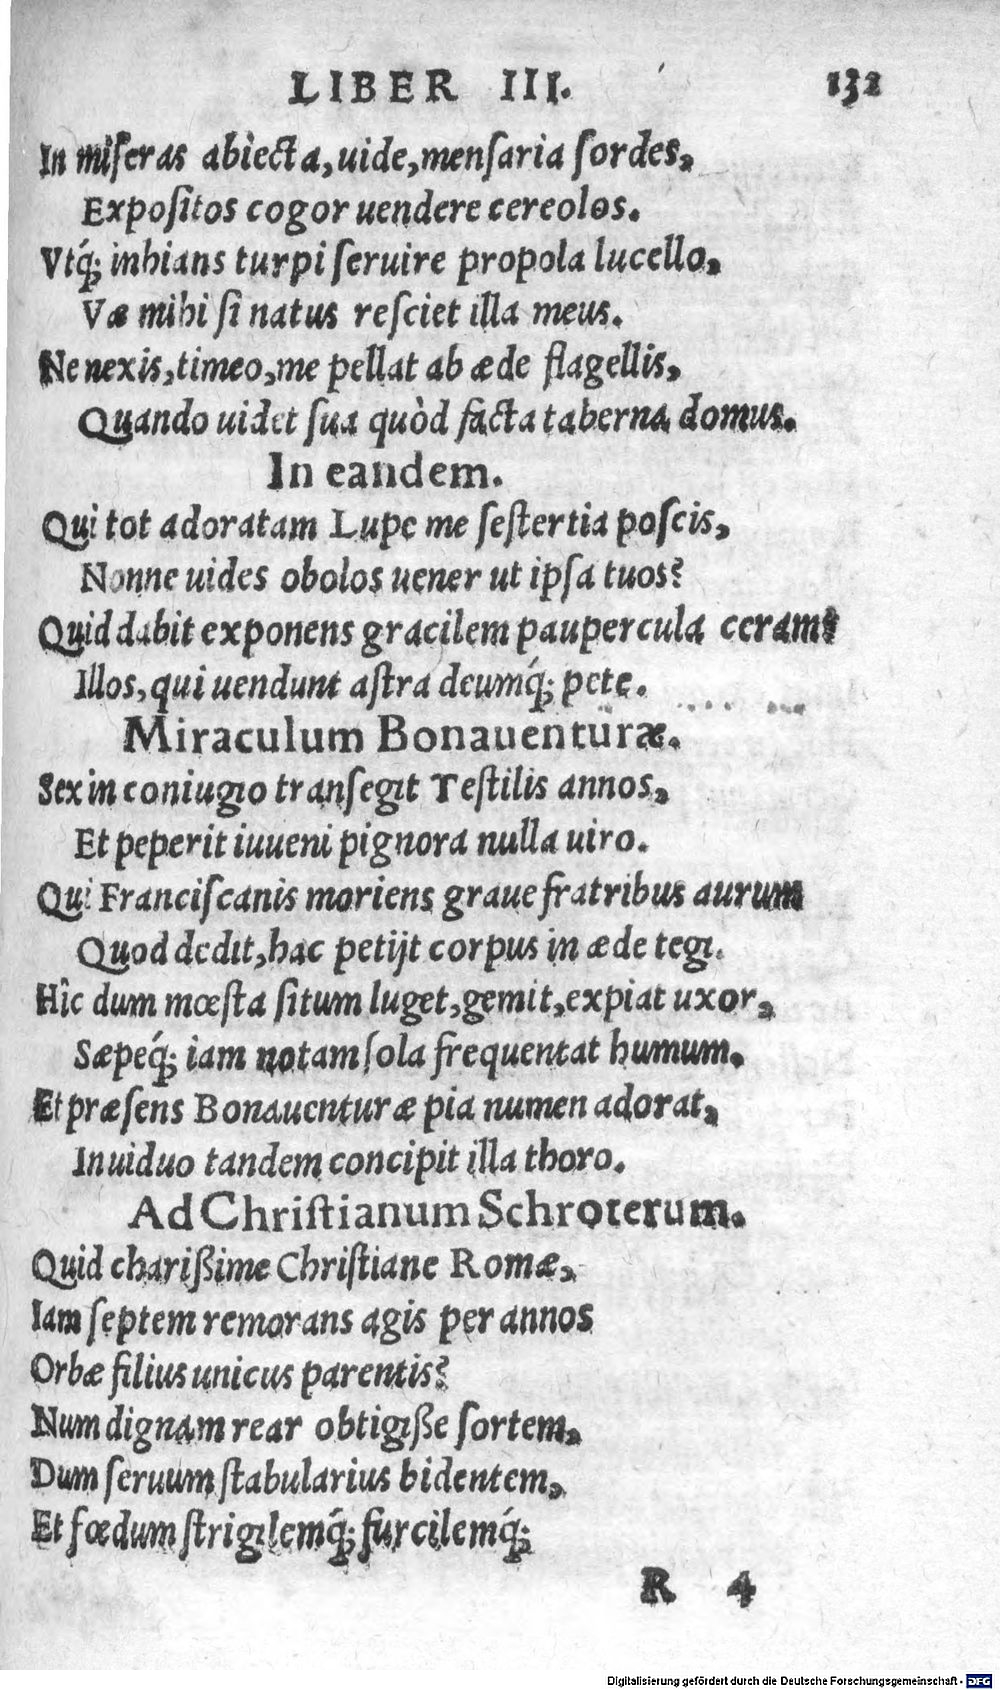 LIBER III. 132
In miſeras abiecta, uide, menſaria ſordes,
Expoſitos cogor uendere cereolos.
Vtq́; inhians turpi ſeruire propola lucello,
Væ mihi ſi natus reſciet illa meus.
Ne nexis, timeo, me pellat ab æde flagellis,
Quando uidet ſua quòd facta taberna domus.
In eandem.
Qui tot adoratam Lupe me ſeſtertia poſcis,
Nonne uides obolos uener ut ipſa tuos?
Quid dabit exponens gracilem paupercula ceram?
Illos, qui uendunt aſtra deumq́; pete.
Miraculum Bonauenturæ.
Sex in coniugio tranſegit Teſtilis annos,
Et peperit iuueni pignora nulla uiro.
Qui Franciſcanis moriens graue fratribus aurum
Quod dedit, hac petijt corpus in æde tegi.
Hîc dum mœſta ſitum luget, gemit, expiat uxor,
Sæpeq́; iam notam ſola frequentat humum.
Et præſens Bonauenturæ pia numen adorat,
In uiduo tandem concipit illa thoro.
Ad Chriſtianum Schroterum.
Quid charißime Chriſtiane Romæ,
Iam ſeptem remorans agis per annos
Orbæ filius unicus parentis?
Num dignam rear obtigiße ſortem,
Dum ſeruum ſtabularius bidentem,
Et fœdum ſtrigilemq́; furcilemq́;
R 4
Digitalisierung gefördert durch die Deutsche Forschungsgemeinschaft - DFG